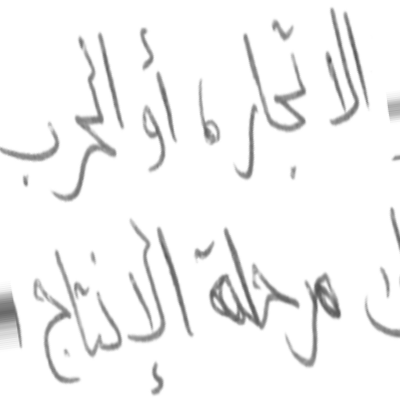 الاتجار، أو الحرب
مرحلة الإنتاج